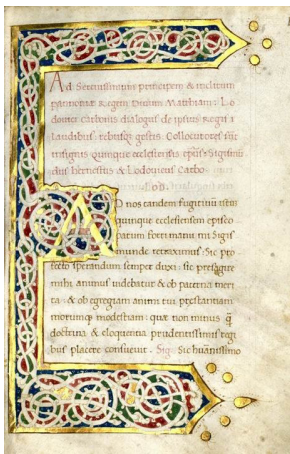 Ad Serenissimum principem & inclitum
pannoniae Regem Diuum Mathiam: Lo
douici Carbonis dialogus de ipsius Regis
laudibus: rebusque gestis. Collocutores sunt
insignis quinque ecclesiensis episcopus Sigismun
dus hernestus & Lodouicus Carbo.
Lod.
AD nos tandem fugitiuum istum
quinque ecclesiensem episco
patum
mi Sigis
munde retraximus: Sic pro
fecto sperandum semper duxi: sic presagire
mihi animus uidebatur & ob paterna meri
ta: & ob egregiam animi tui prestantiam
morumque modestiam: quae non minus q̄
doctrina & eloquentia prudentissimis regi
bus placere consueuit. Sig. Sic humanissimo